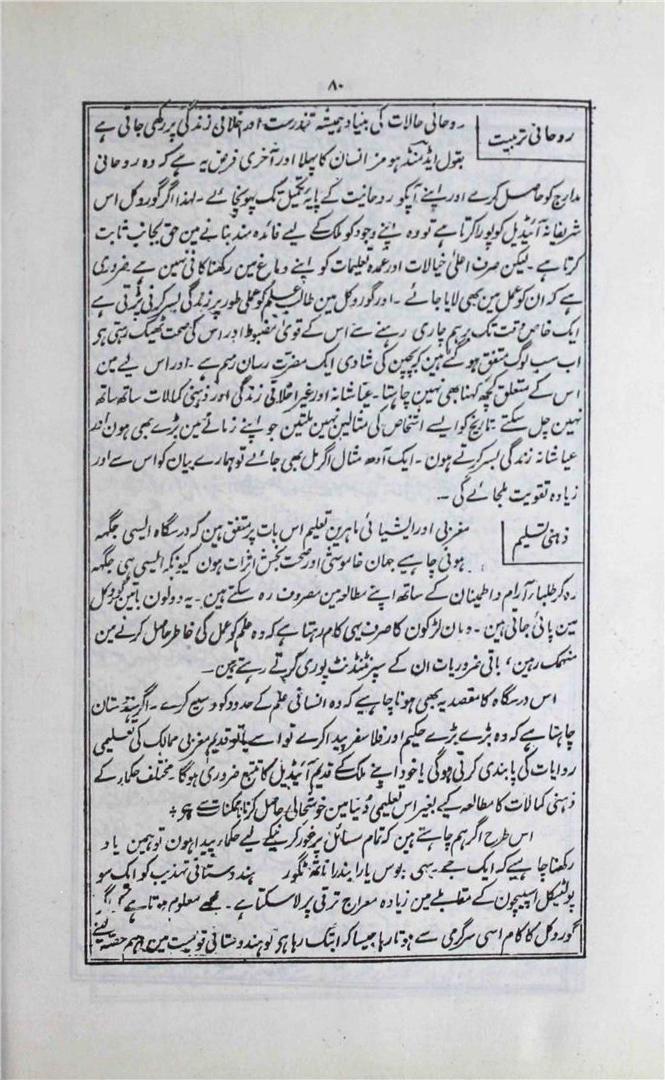 ۸۰
روحانی تربیت
روحانی حالات کی بنیاد ہمیشہ تندرست اور اخلاقی زندگی پر رکھی جاتی ہے
بقول ایڈمنڈ ہومز انسان کا پہلا اور آخری فرض یہ ہے کہ وہ روحانی
مدارج کو حاصل کرے اور اپنے آپکو روحانیت کے پایہ تکمیل تک پہونچائے ۔ لہذا اگر گوروکل اس
شریفانہ آئیڈیل کو پورا کرتا ہے تو وہ اپنے وجود کو ملک کے لیے فائدہ مند بنانے مین حق بجانب ثابت
کرتا ہے ۔ لیکن صرف اعلیٰ خیالات اور عمدہ تعلیمات کو اپنے دماغ مین رکھنا کافی نہین ہے ضروری
ہے کہ ان کو عمل مین بھی لایا جائے ۔ اور گوروکل مین طالب علم کو عملی طور پر زندگی بسر کرنی پڑتی ہے
ایک خاص وقت تک برہمچاری رہنے سے اس کے قویٰ مضبوط اور اس کی صحت ٹھیک رہتی ہو
اب سب لوگ متفق ہو گئے ہین کہ بچپن کی شادی ایک مضرت رسان رسم ہے ۔ اور اس لیے مین
اس کے متعلق کچھ کہنا بھی نہین چاہتا ۔ عیاشانہ اور غیر اخلاقی زندگی اور ذہنی کمالات ساتھ ساتھ
نہین چل سکتے ۔ تاریخ کو ایسے اشخاص کی مثالین نہین ملتین جو اپنے زمانے مین بڑے بھی ہون اور
عیاشانہ زندگی بسر کرتے ہون ۔ ایک آدھ مثال اگر مل بھی جائے تو ہمارے بیان کو اس سے اور
زیادہ تقویت ملجائے گی ۔
ذہنی تعلیم
مغربی اور ایشیائی ماہرین تعلیم اس بات پر متفق ہین کہ درسگاہ ایسی جگہہ
ہونی چاہیے جہان خاموشی اور صحت بخش اثرات ہون کیونکہ ایسی ہی جگہہ
رہ کر طلبار آرام و اطمینان کے ساتھ اپنے مطالعہ مین مصروف رہ سکتے ہین ۔ یہ دونون باتین گوروکل
مین پائی جاتی ہین ۔ وہان لڑکون کا صرف یہی کام رہتا ہے کہ وہ علم کو عمل کی خاطر حاصل کرنے مین
منہمک رہین، باقی ضروریات ان کے سپرنٹنڈنٹ پوری کرتے رہتے ہین ۔
اس درسگاہ کا مقصد یہ بھی ہونا چاہیے کہ وہ انسانی علم کے حدود کو وسیع کرے ۔ اگر ہندوستان
چاہتا ہے کہ وہ بڑے بڑے حکیم اور فلاسفر پیدا کرے تو اسے یا تو قدیم مغربی ممالک کی تعلیمی
روایات کی پابندی کرنی ہوگی یا خود اپنے ملک کے قدیم آئیڈیل کا تتبع ضروری ہوگا ۔ مختلف حکماء کے
ذہنی کمالات کا مطالعہ کیے بغیر اس تعلیمی دُنیا مین خوشحالی حاصل کرنا
اس طرح اگر ہم چاہتے ہین کہ تمام مسائل پر غور کرنیکے لیے حکماء پیدا ہون تو ہمین یاد
رکھنا چاہیے کہ ایک جے ۔ سی ۔ بوس یا رابندرا ناتھ ٹیگور ہندوستانی تہذیب کو ایک سو
پولٹیکل اسپیچون کے مقابلے مین زیادہ معراج ترقی پر لا سکتا ہے ۔ مجھے معلوم ہوتا ہے کہ اگر
گوروکل کا کام اسی سرگرمی سے ہوتا رہا جیسا کہ ابتک رہا ہو تو ہندوستانی قومیت مین اہم حصہ